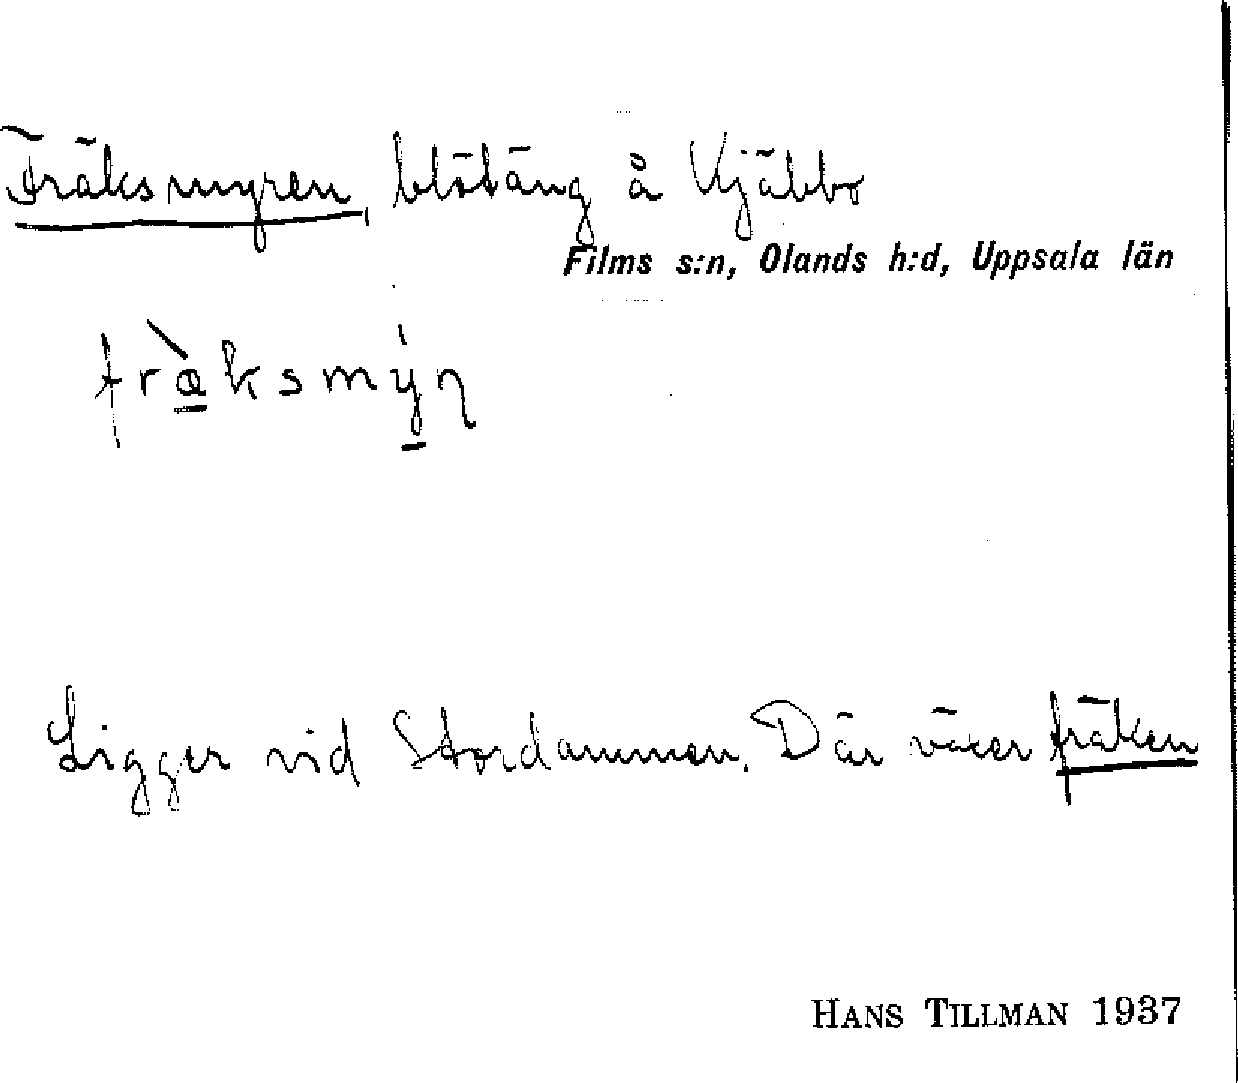 Fräksmyren, blötäng å Vjäbbo
Films s:n, Olands h:d, Uppsala län
fràksmýn
Ligger vid Stordammen. Där växer fräken
HANS TILLMAN 1937